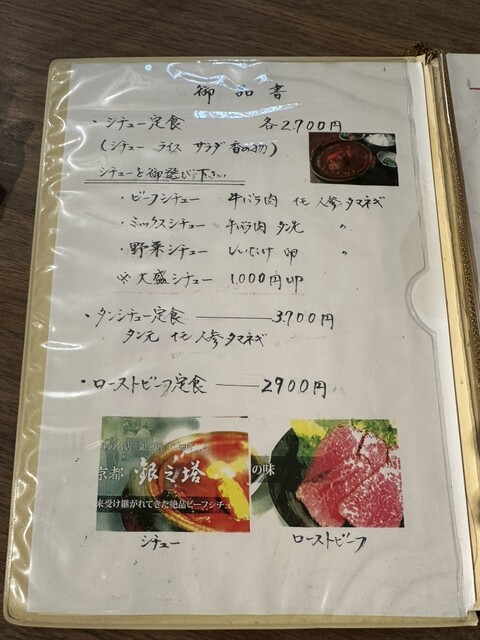 御品書
・シチュー定食 各2,700円
(シチュー ライス サラダ 香の物)
シチューを御選び下さい
・ビーフシチュー 牛バラ肉 イモ 人参 タマネギ
・ミックスシチュー 牛バラ肉 タン先 〃
・野菜シチュー しいたけ 卵 〃
※大盛シチュー 1,000円UP
・タンシチュー定食 ——— 3,700円
タン元 イモ 人参 タマネギ
・ローストビーフ定食 —— 2900円
京都 銀之塔 の味
来受け継がれてきた絶品ビーフシチュ
シチュー ローストビーフ